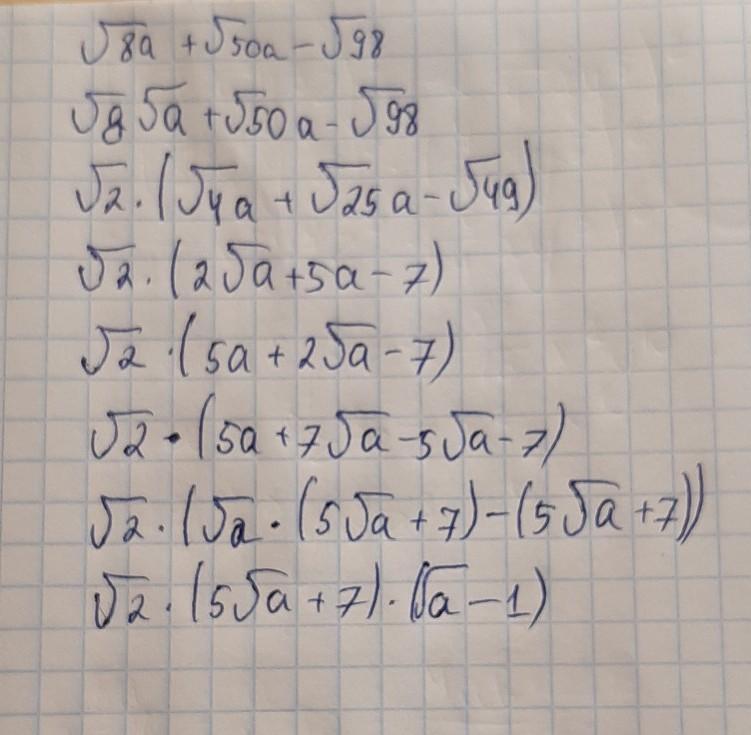 √8a + √50a - √98
√8 √a + √50a - √98
√2 · (√4a + √25a - √49)
√2 · (2√a + 5a - 7)
√2 · (5a + 2√a - 7)
√2 · (5a + 7√a - 5√a - 7)
√2 · (√a · (5√a + 7) - (5√a + 7))
√2 · (5√a + 7) · (√a - 1)